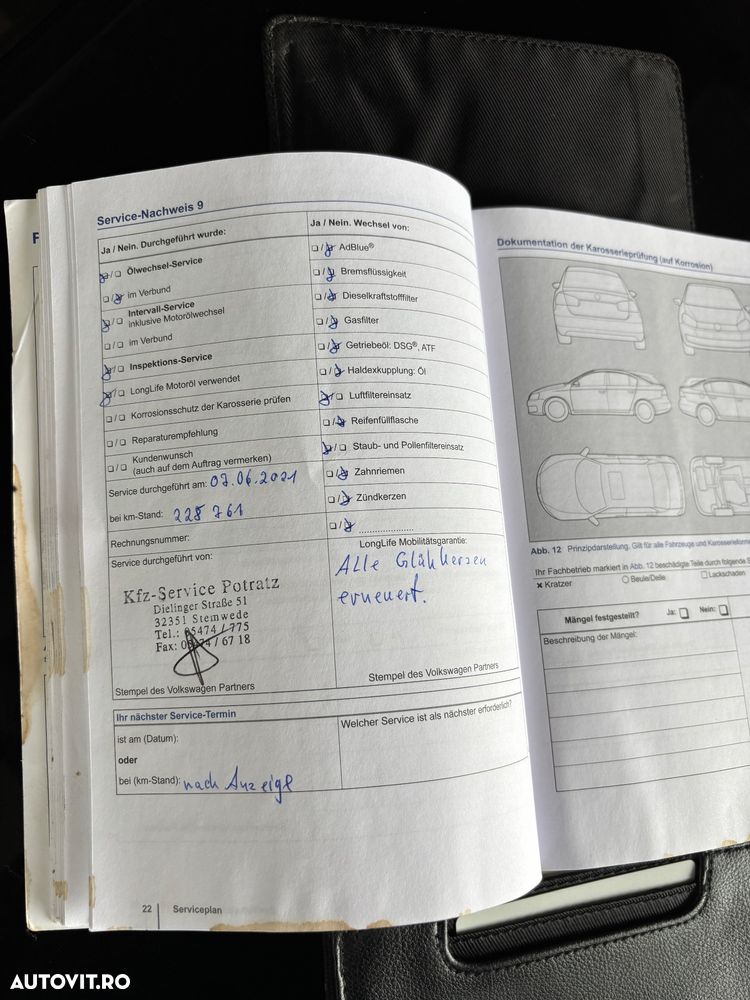 F
Service-Nachweis 9
Ja / Nein. Durchgeführt wurde:
Ölwechsel-Service
im Verbund
Intervall-Service
inklusive Motorölwechsel
im Verbund
Inspektions-Service
LongLife Motoröl verwendet
Korrosionsschutz der Karosserie prüfen
Reparaturempfehlung
Kundenwunsch
(auch auf dem Auftrag vermerken)
Service durchgeführt am: 07.06.2021
bei km-Stand: 228 761
Rechnungsnummer:
Service durchgeführt von:
Kfz-Service Potratz
Dielinger Straße 51
32351 Stemwede
Tel.: 05474 / 775
Fax: / 67 18
Stempel des Volkswagen Partners
Ja / Nein. Wechsel von:
AdBlue®
Bremsflüssigkeit
Dieselkraftstofffilter
Gasfilter
Getriebeöl: DSG®, ATF
Haldexkupplung: Öl
Luftfiltereinsatz
Reifenfüllflasche
Staub- und Pollenfiltereinsatz
Zahnriemen
Zündkerzen
LongLife Mobilitätsgarantie:
Alle Glühkerzen
erneuert.
Stempel des Volkswagen Partners
Ihr nächster Service-Termin
ist am (Datum):
oder
bei (km-Stand): nach Anzeige
Welcher Service ist als nächster erforderlich?
22 Serviceplan
Dokumentation der Karosserieprüfung (auf Korrosion)
Abb. 12 Prinzipdarstellung. Gilt für alle Fahrzeuge und
Ihr Fachbetrieb markiert in Abb. 12 beschädigte Teile durch folgende
Kratzer Beule/Delle Lackschaden
Mängel festgestellt? Ja: Nein:
Beschreibung der Mängel:
AUTOVIT.RO